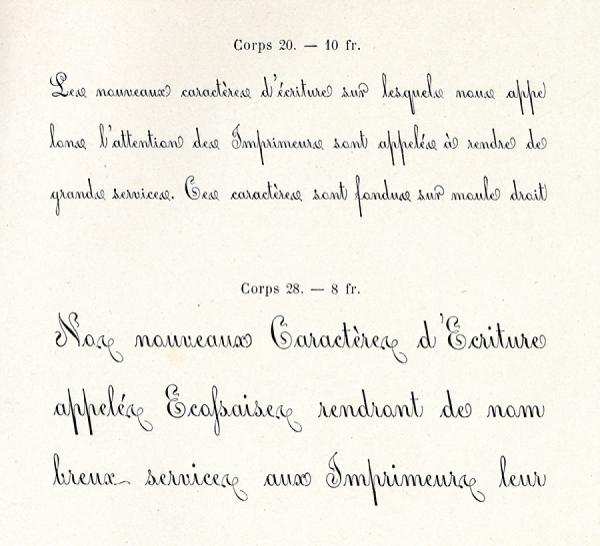 Corps 20. — 10 fr.
Les nouveaux caractères d'écriture sur lesquels nous appe
lons l'attention des Imprimeurs sont appelés à rendre de
grands services. Ces caractères sont fondus sur moule droit
Corps 28. — 8 fr.
Nos nouveaux Caractères d'Ecriture
appelés Ecoſsaises rendront de nom
breux services aux Imprimeurs leur